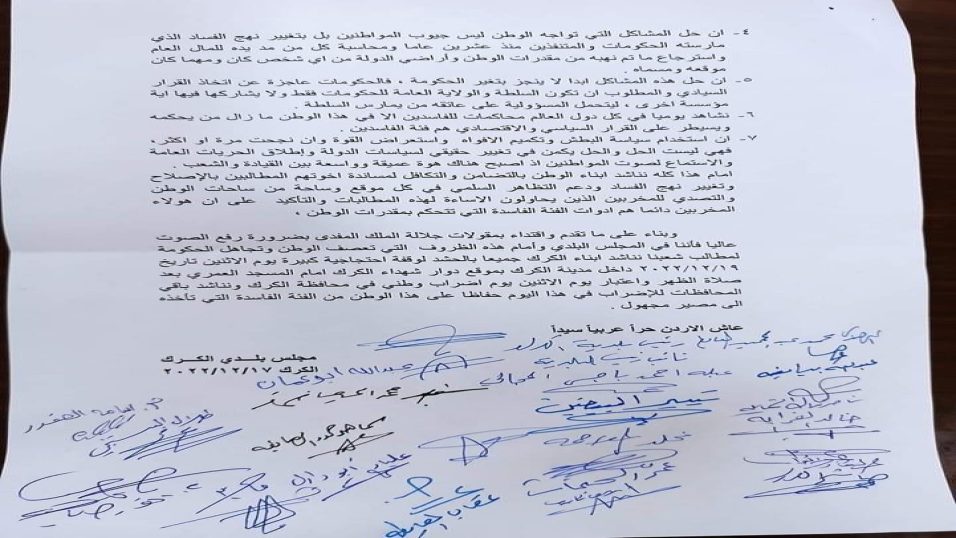 ٤- ان حل المشاكل التي تواجه الوطن ليس جيوب المواطنين بل بتغيير نهج الفساد الذي
مارسته الحكومات والمتنفذين منذ عشرين عاما ومحاسبة كل من مد يده للمال العام
واسترجاع ما تم نهبه من مقدرات الوطن وأراضي الدولة من اي شخص كان ومهما كان
موقعه ومسماه .
٥- ان حل هذه المشاكل ابدا لا ينجز بتغير الحكومة ، فالحكومات عاجزة عن اتخاذ القرار
السيادي والمطلوب ان تكون السلطة والولاية العامة للحكومات فقط ولا يشاركها فيها اية
مؤسسة اخرى ، ليتحمل المسؤولية على عاتقه من يمارس السلطة .
٦- نشاهد يوميا في كل دول العالم محاكمات للفاسدين الا في هذا الوطن ما زال من يحكمه
ويسيطر على القرار السياسي والاقتصادي هم فئة الفاسدين .
٧- ان استخدام سياسة البطش وتكميم الافواه واستعراض القوة وان نجحت مرة او اكثر،
فهي ليست الحل والحل يكمن في تغيير حقيقي لسياسات الدولة وإطلاق الحريات العامة
والاستماع لصوت المواطنين اذ اصبح هناك هوة عميقة وواسعة بين القيادة والشعب .
امام هذا كله نناشد ابناء الوطن بالتضامن والتكافل لمساندة اخوتهم المطالبين بالإصلاح
وتغيير نهج الفساد ودعم التظاهر السلمي في كل موقع وساحة من ساحات الوطن
والتصدي للمخربين الذين يحاولون الاساءة لهذه المطالبات والتأكيد على ان هولاء
المخربين دائما هم ادوات الفئة الفاسدة التي تتحكم بمقدرات الوطن ،
وبناء على ما تقدم واقتداء بمقولات جلالة الملك المفدى بضرورة رفع الصوت
عاليا فأننا في المجلس البلدي وأمام هذه الظروف التي تعصف الوطن وتجاهل الحكومة
لمطالب شعبنا نناشد ابناء الكرك جميعا بالحشد لوقفة احتجاجية كبيرة يوم الاثنين تاريخ
٢٠٢٢/١٢/١٩ داخل مدينة الكرك بموقع دوار شهداء الكرك امام المسجد العمري بعد
صلاة الظهر واعتبار يوم الاثنين يوم اضراب وطني في محافظة الكرك ونناشد باقي
المحافظات للإضراب في هذا اليوم حفاظا على هذا الوطن من الفئة الفاسدة التي تأخذه
الى مصير مجهول .
عاش الاردن حراً عربياً سيداً
مجلس بلدي الكرك
الكرك ٢٠٢٢/١٢/١٧
رئيس بلدية الكرك
عبدالله ابو